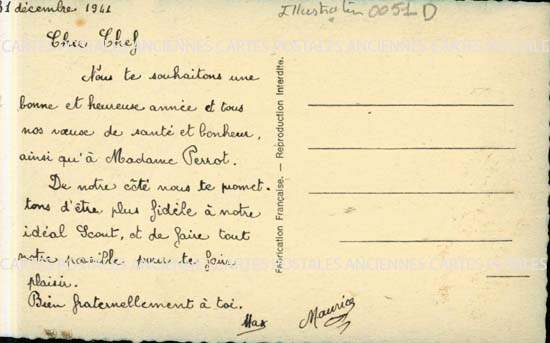 31 décembre 1941
Illustration 0051 D
Cher Chef
Nous te souhaitons une
bonne et heureuse année et tous
nos vœux de santé et bonheur,
ainsi qu'à Madame Perrot.
De notre côté nous te promet-
tons d'être plus fidèle à notre
idéal Scout, et de faire tout
notre possible pour te faire
plaisir.
Bien fraternellement à toi.
Max
Maurice
Fabrication Française. — Reproduction Interdite.
CARTES POSTALES ANCIENNES